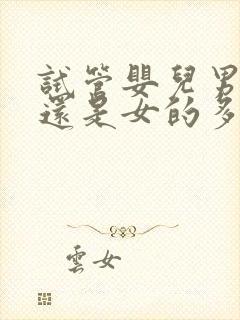 試管嬰兒男
還是女的多
雲女